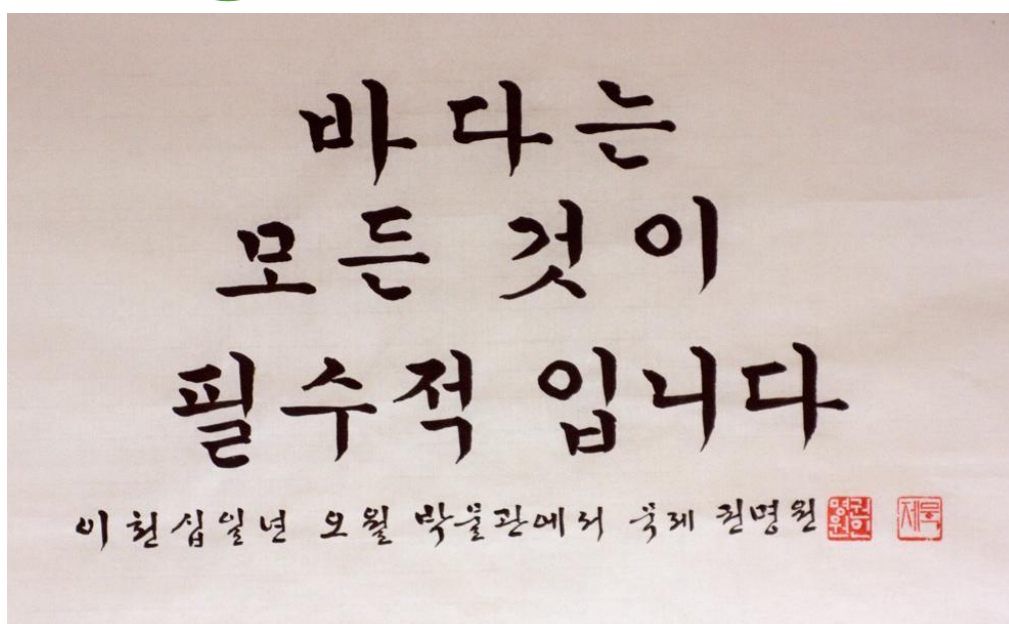 바다는
모든 것이
필수적 입니다
이천십일년 오월 박물관에서 묵제 권명원
권명원
묵제